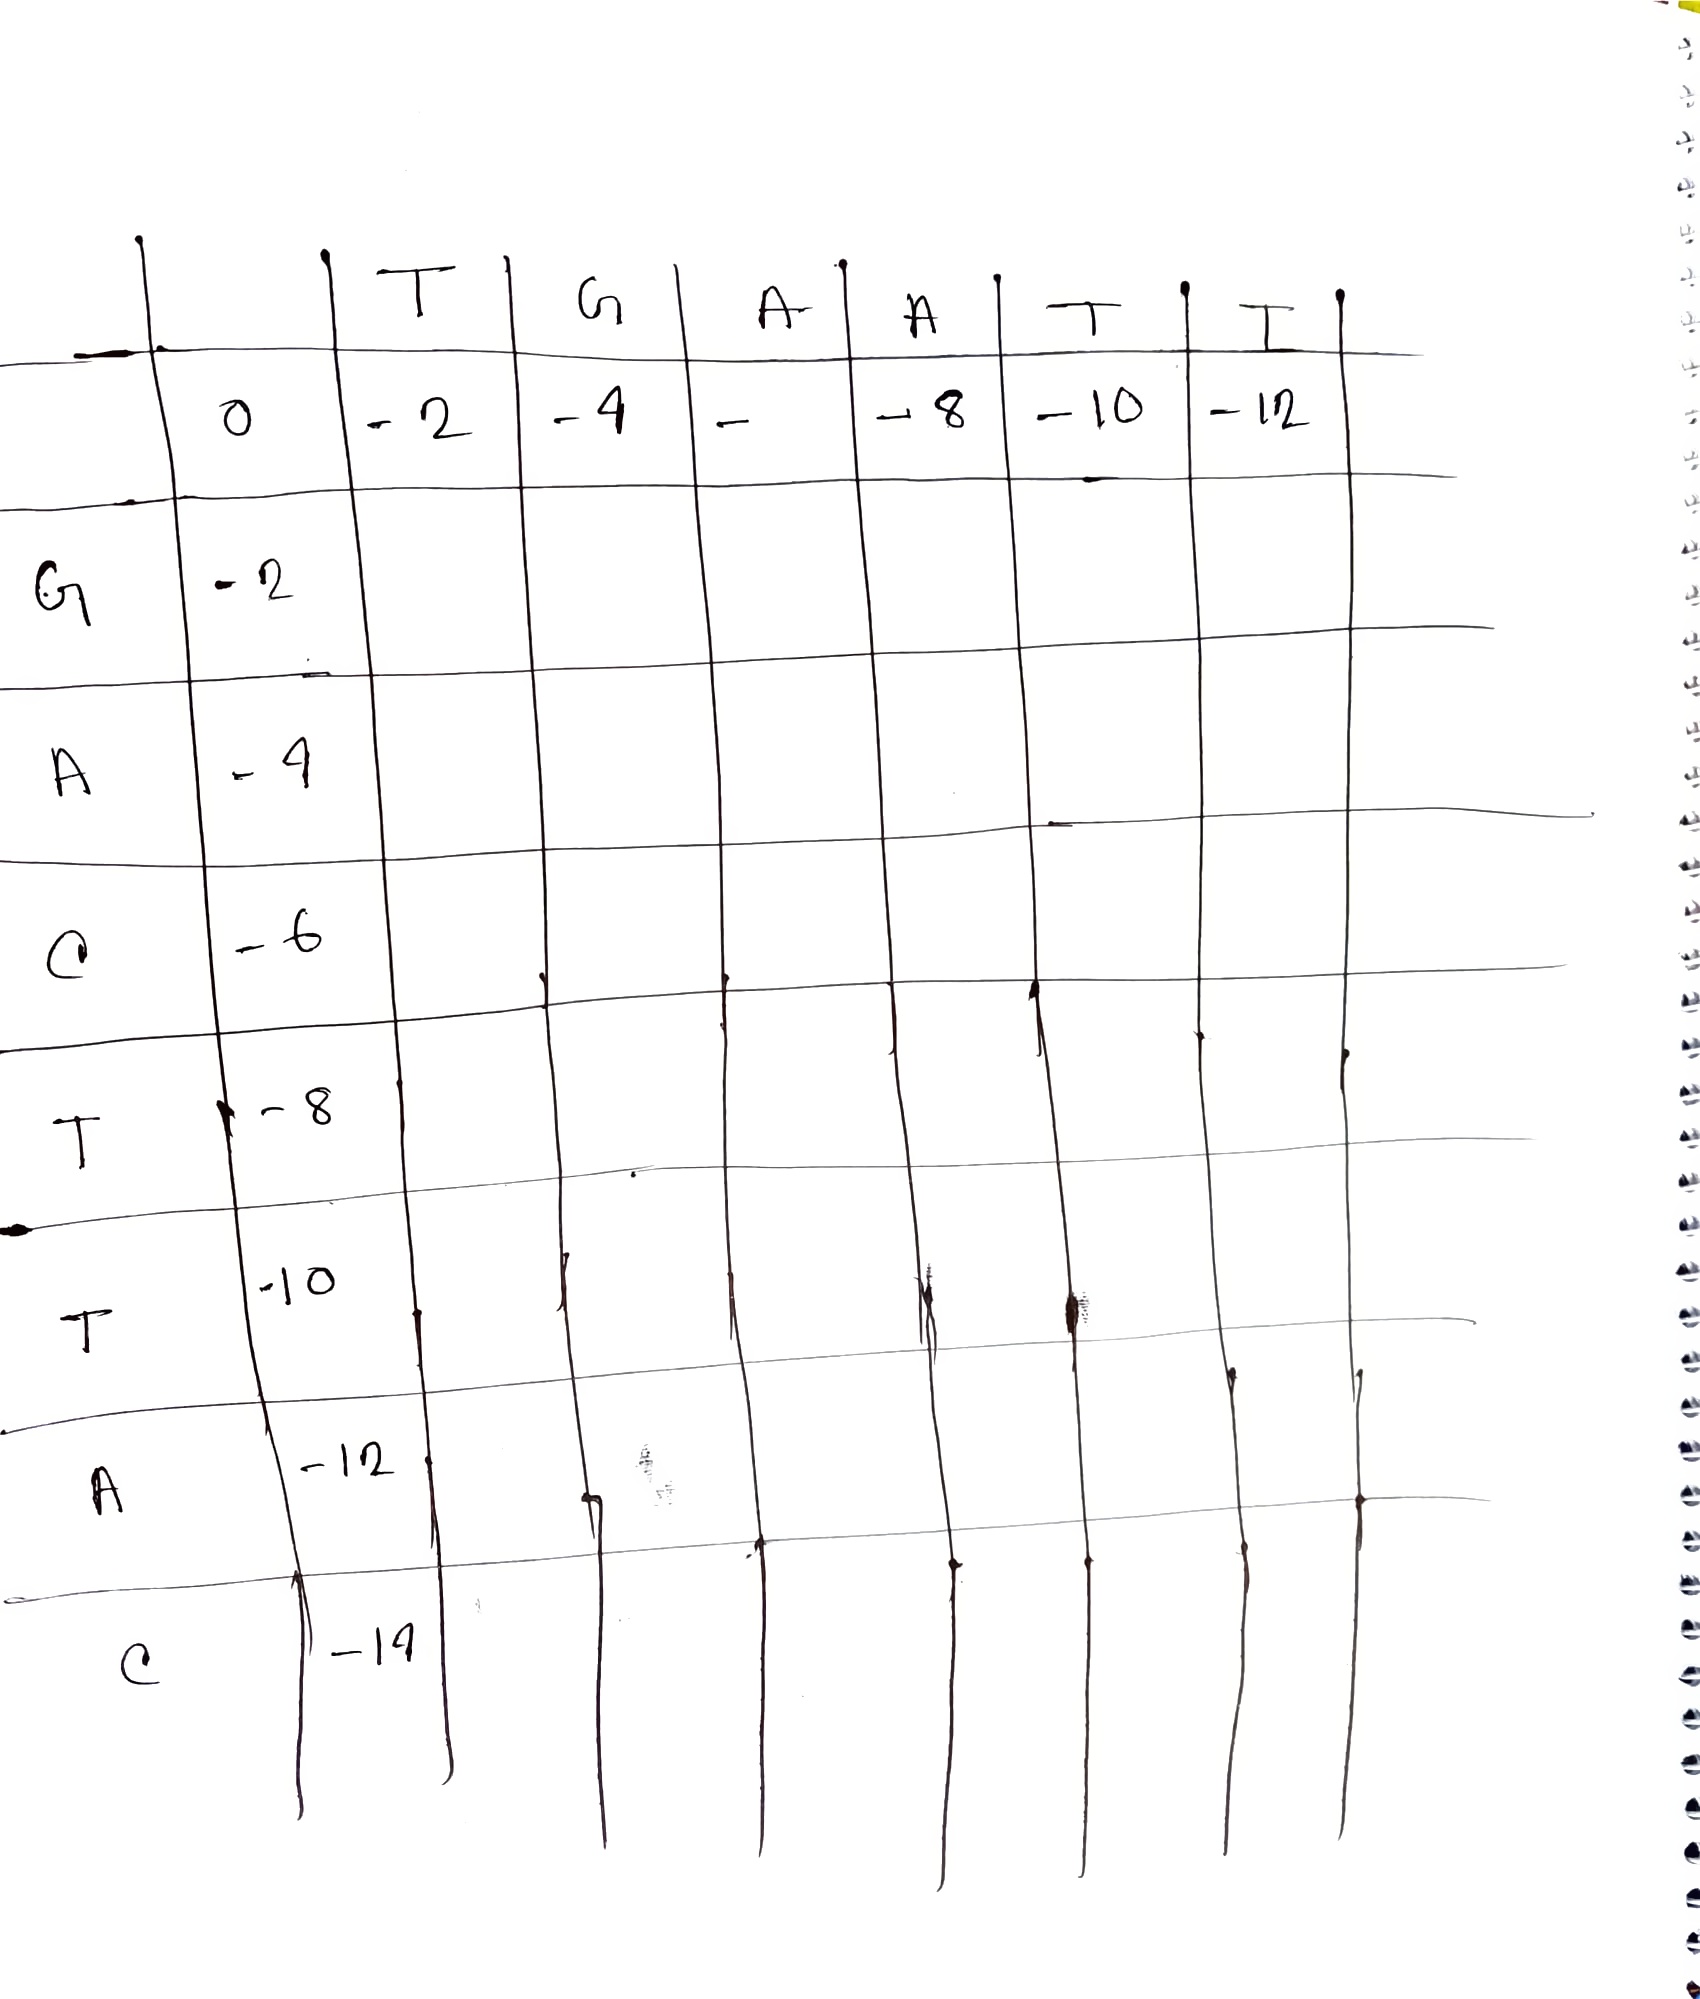 T G A A T T
0 -2 -4 - -8 -10 -12
G -2
A -4
C -6
T -8
T -10
A -12
C -14